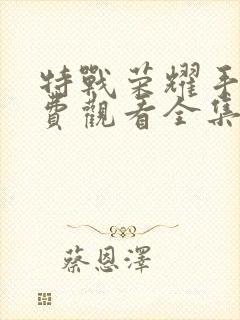 特戰榮耀手
費觀看全集
蔡恩澤